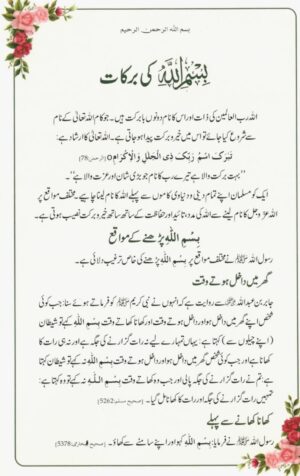 بسم اللہ الرحمن الرحیم
بِسْمِ اللّٰہِ کی برکات
اللہ رب العالمین کی ذات اور اس کا نام دونوں بابرکت ہیں۔ جو کام اللہ تعالیٰ کے نام
سے شروع کیا جائے تو اس میں خیر و برکت پیدا ہو جاتی ہے۔ اللہ تعالیٰ کا ارشاد ہے:
تَبٰرَكَ اسْمُ رَبِّكَ ذِى الْجَلٰلِ وَالْاِكْرَامِ ۝ (الرحمن:78)
"بہت برکت والا ہے تیرے رب کا نام جو بڑی شان اور عزت والا ہے"۔
ایک کو مسلمان اپنے تمام دینی و دنیاوی کاموں سے پہلے اللہ کا نام لینا چاہیے۔ مختلف مواقع پر
اللہ عزوجل کا نام لینے سے اللہ کی مدد، تائید اور حفاظت کے ساتھ ساتھ خیر و برکت نصیب ہوتی ہے۔
بِسْمِ اللّٰہِ پڑھنے کے مواقع
رسول اللہ ﷺ نے مختلف مواقع پر بِسْمِ اللّٰہِ پڑھنے کی خاص ترغیب دلائی ہے۔
گھر میں داخل ہوتے وقت
جابر بن عبداللہ سے روایت ہے کہ انہوں نے نبی کریم ﷺ کو فرماتے ہوئے سنا: جب کوئی
شخص اپنے گھر میں داخل ہو اور داخل ہوتے وقت اور کھانا کھاتے وقت بِسْمِ اللّٰہِ کہے تو شیطان
(اپنے چیلوں سے) کہتا ہے: یہاں تمہارے لیے نہ رات گزارنے کی جگہ ہے اور نہ ہی رات کا
کھانا ہے اور جب کوئی شخص گھر میں داخل ہو اور داخل ہوتے وقت بِسْمِ اللّٰہِ نہ کہے تو شیطان کہتا
ہے: تم نے رات گزارنے کی جگہ پالی اور جب وہ کھاتے وقت بِسْمِ اللّٰہِ نہ کہے تو وہ کہتا ہے:
تمہیں رات گزارنے کی جگہ اور رات کا کھانا مل گیا۔ (صحیح مسلم:5262)
کھانا کھانے سے پہلے
رسول اللہ ﷺ نے فرمایا: بِسْمِ اللّٰہِ کہو اور اپنے سامنے سے کھاؤ۔ (صحیح بخاری:5378)